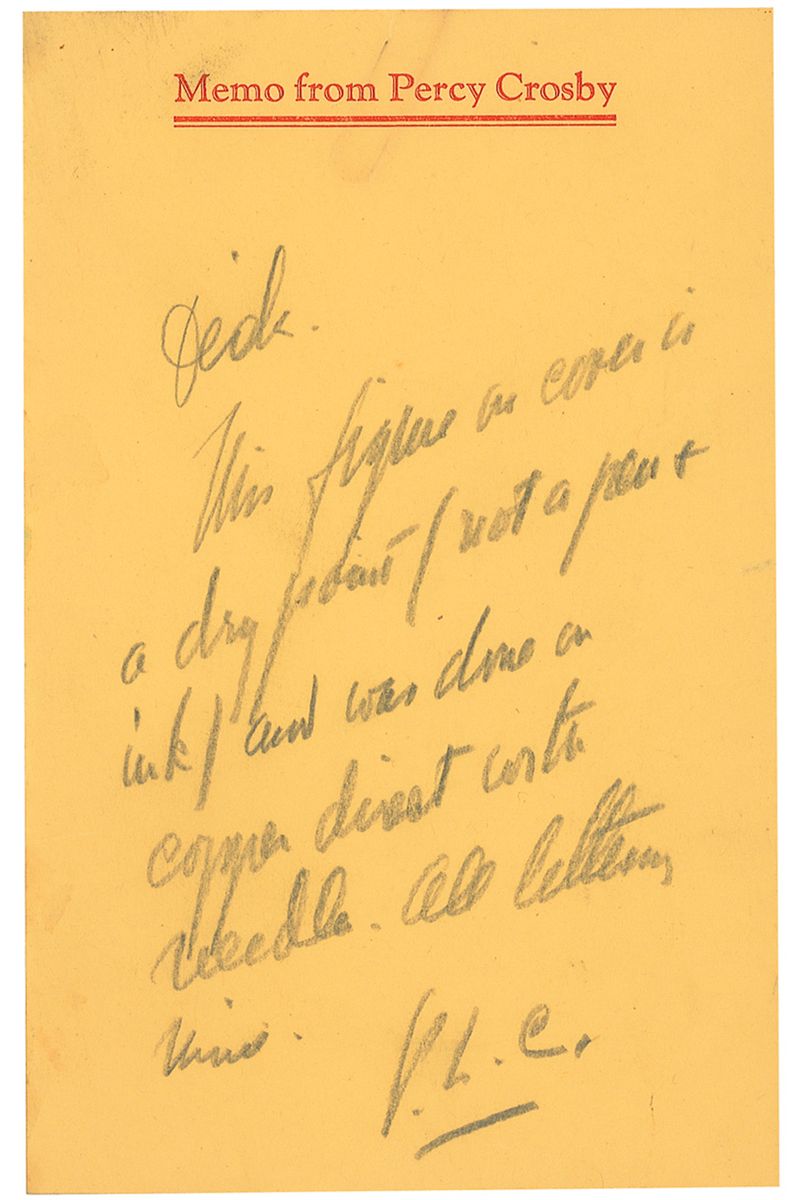 Memo from Percy Crosby
Dick.
This figure on cover is
a dry point (not a pen +
ink) and was done on
copper direct with
needle. All lettering
mine.
P.L.C.